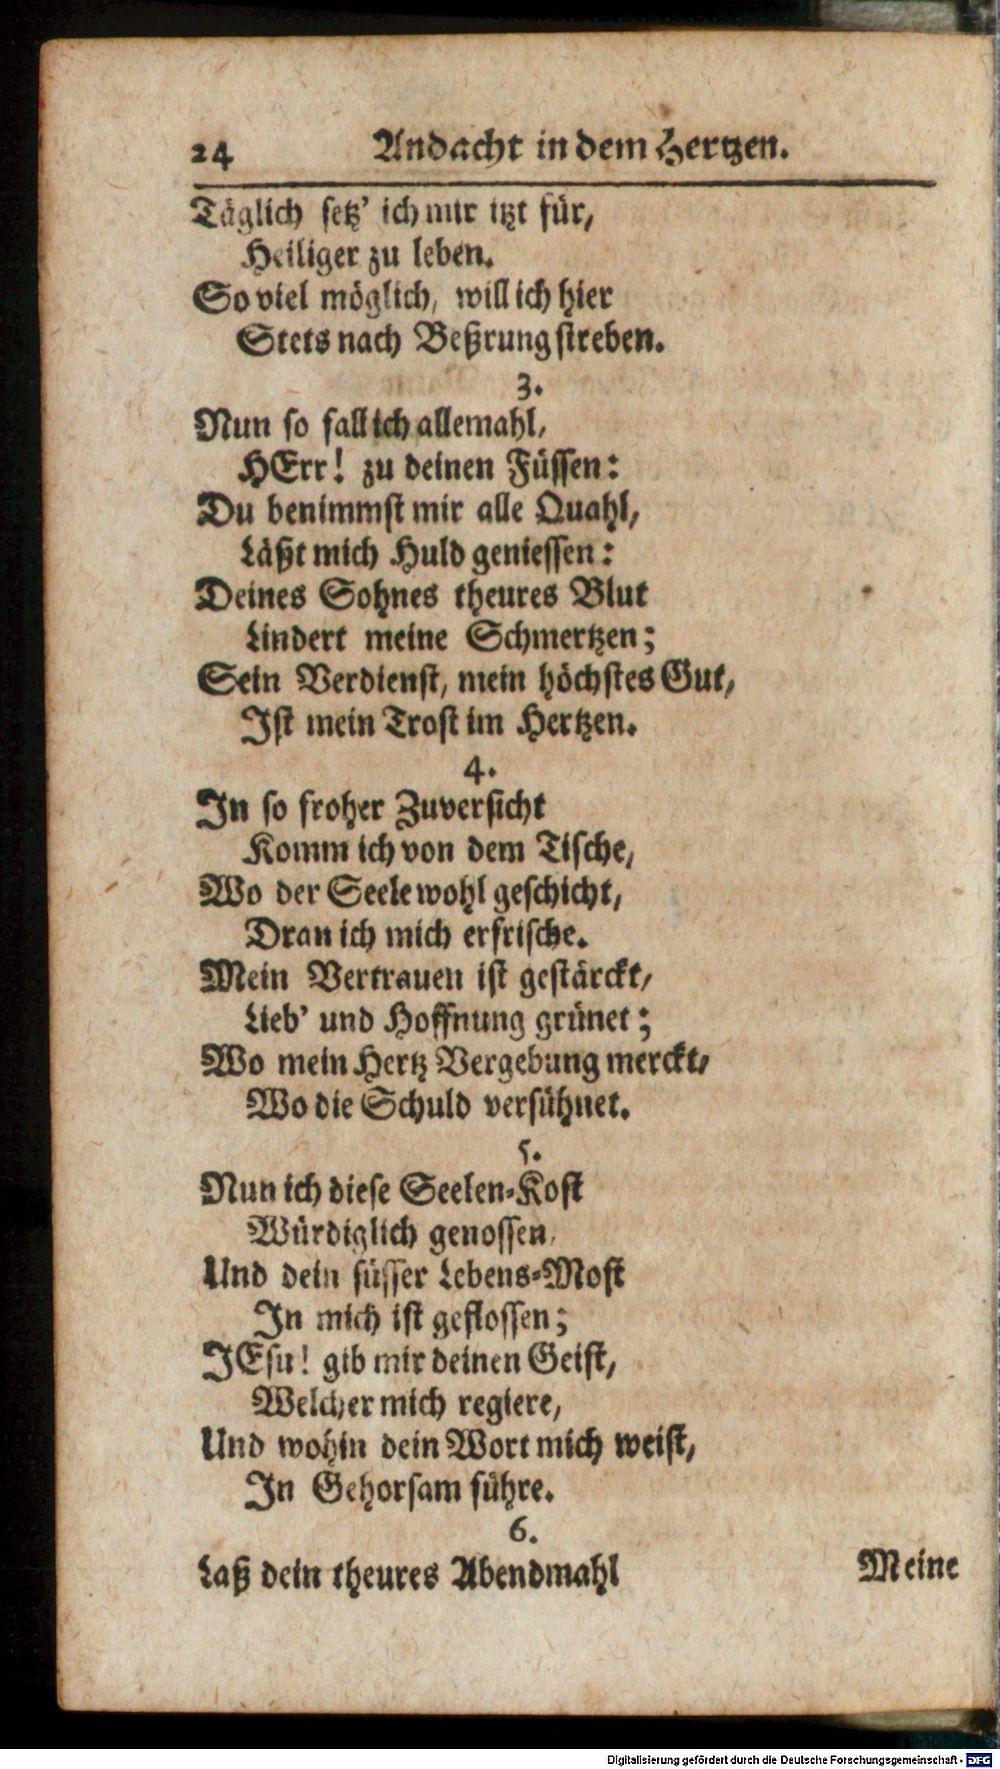 24 Andacht in dem Hertzen.
Täglich setz' ich mir itzt für,
Heiliger zu leben.
So viel möglich, will ich hier
Stets nach Beßrung streben.
3.
Nun so fall ich allemahl,
HErr! zu deinen Füssen:
Du benimmst mir alle Quahl,
Läßt mich Huld geniessen:
Deines Sohnes theures Blut
Lindert meine Schmertzen;
Sein Verdienst, mein höchstes Gut,
Ist mein Trost im Hertzen.
4.
In so froher Zuversicht
Komm ich von dem Tische,
Wo der Seele wohl geschicht,
Dran ich mich erfrische.
Mein Vertrauen ist gestärckt,
Lieb' und Hoffnung grünet;
Wo mein Hertz Vergebung merckt,
Wo die Schuld versühnet.
5.
Nun ich diese Seelen-Kost
Würdiglich genossen,
Und dein süsser Lebens-Most
In mich ist geflossen;
JEsu! gib mir deinen Geist,
Welcher mich regiere,
Und wohin dein Wort mich weist,
In Gehorsam führe.
6.
Laß dein theures Abendmahl
Meine
Digitalisierung gefördert durch die Deutsche Forschungsgemeinschaft - DFG